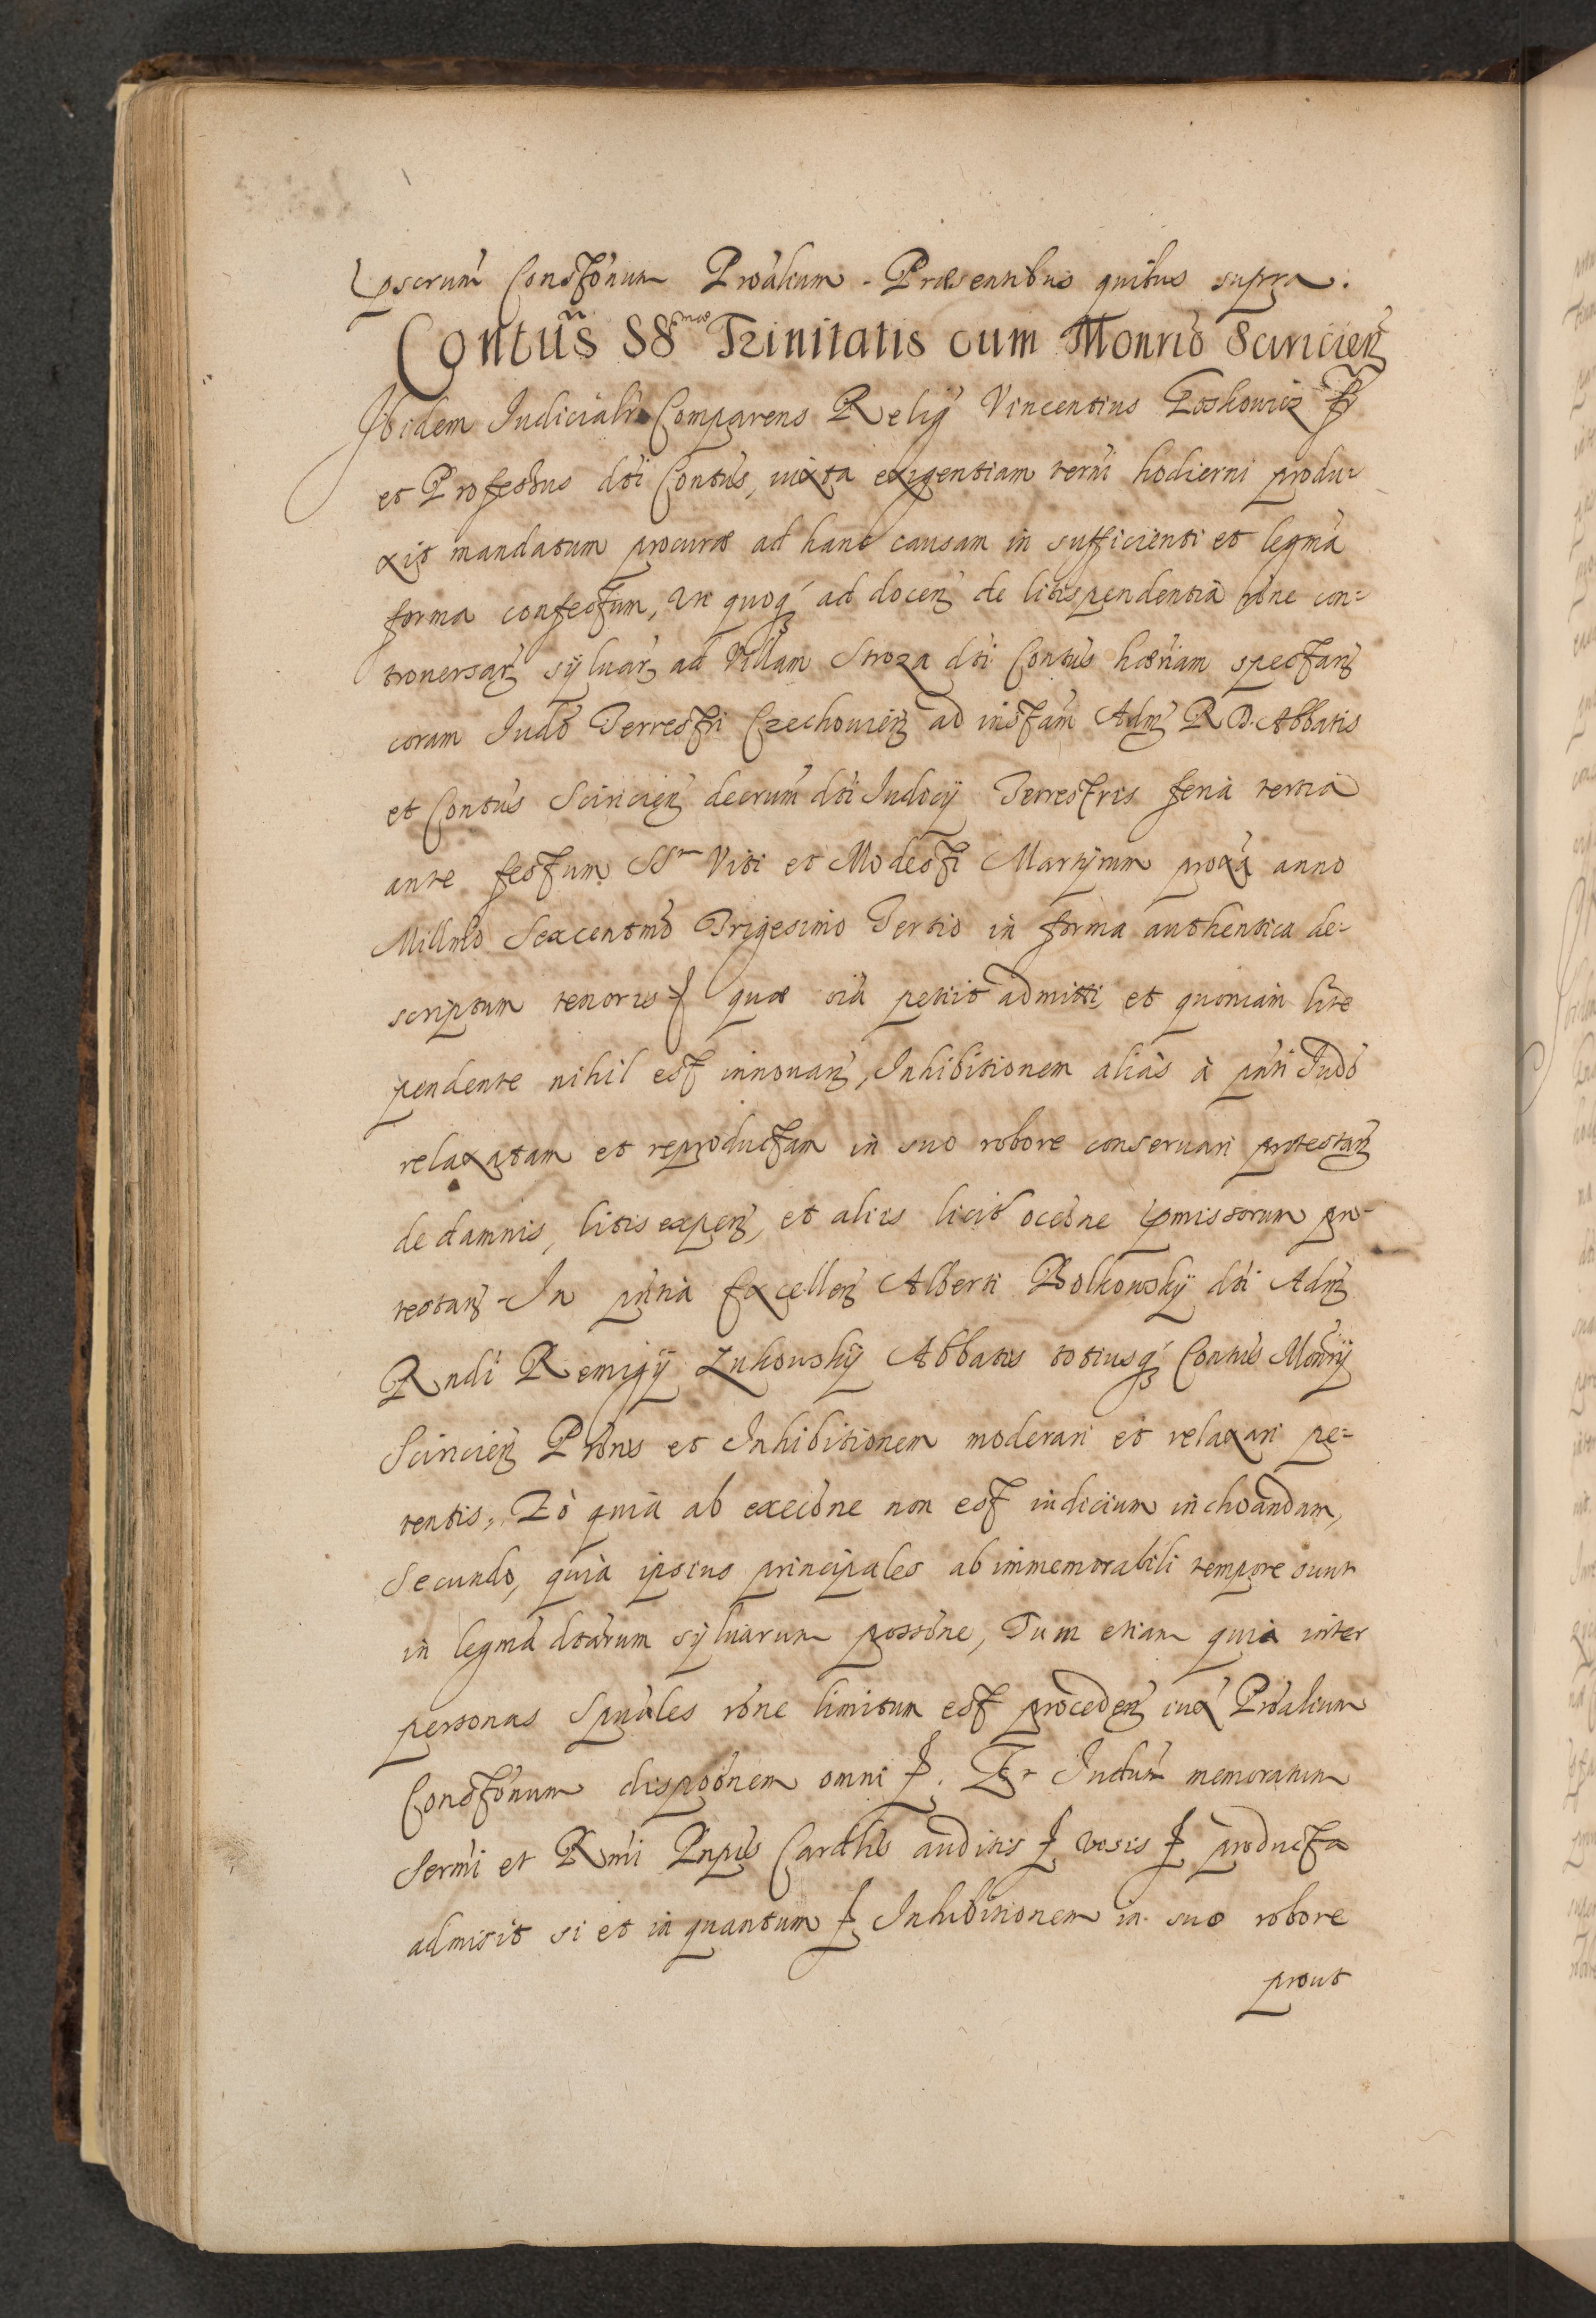 pscrum Constōnum Proālium. Præsentibus quibus supra.
Contūs SSmæ Trinitatis cum Monrio Sciricien̄
Ibidem Judicialr Comparens Relig Vincentius Loskowicz Fr
et Professus dti Contūs, iuxta exigentiam terni hodierni produ-
xit mandatum procuræ ad hanc causam in sufficienti et legma
forma confectum, ut quoq ad docen de litispendentia rōne con-
trouersan syluar ad Villam Stroza dti Contūs hæriam spectan
coram Judō Terrestri Czechouien ad instam Adm R D. Abbatis
et Contūs Sciricien decrum dti Judicij Terrestris feria tertia
ante festum SSm Viti et Modesti Martyrum proxa anno
Millmo Sexcentmo Trigesimo Tertio in forma authentica de-
scriptum tenoris quæ oia petiit admitti, et quoniam lite
pendente nihil est innouan, Inhibitionem aliàs à pnti Judō
relaxatam et reproductam in suo robore conseruari protestan
de damnis, litis expen, et aliis licit occōne pmissorum pro-
testan. In pntia Excellen Alberti Bolkowsky dti Adm
Rndi Remigij Zukowsky Abbatis totiusq Contūs Monrij
Sciricien Pronis et Inhibitionem moderari et relaxari pe-
tentis, Eò quia ab exeōne non est iudicium inchoandum,
Secundo, quia ipsius principales ab immemorabili tempore sunt
in legma dtarum syluarum possōne, Tum etiam quia inter
personas Spuales rōne limitum est proceden iux Proalium
Constōnum dispoōnem omni. Et Judum memoratum
Sermi et Rmi Pnpis Cardlis auditis visis producta
admisit si et in quantum Inhibitionem in suo robore
prout